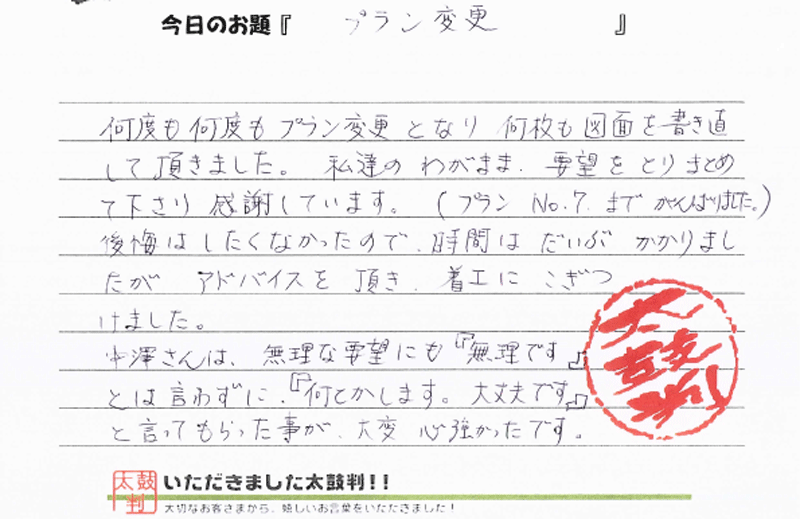 今日のお題『 プラン変更 』
何度も何度もプラン変更となり何枚も図面を書き直
して頂きました。私達のわがまま、要望をとりまとめ
て下さり感謝しています。(プランNo.7.までがんばりました。)
後悔はしたくなかったので、時間はだいぶかかりまし
たがアドバイスを頂き、着工にこぎつ
けました。
中澤さんは、無理な要望にも『無理です』
とは言わずに、『何とかします。大丈夫です』
と言ってもらった事が、大変心強かったです。
太鼓判
太鼓判 いただきました太鼓判!!
大切なお客さまから、嬉しいお言葉をいただきました!